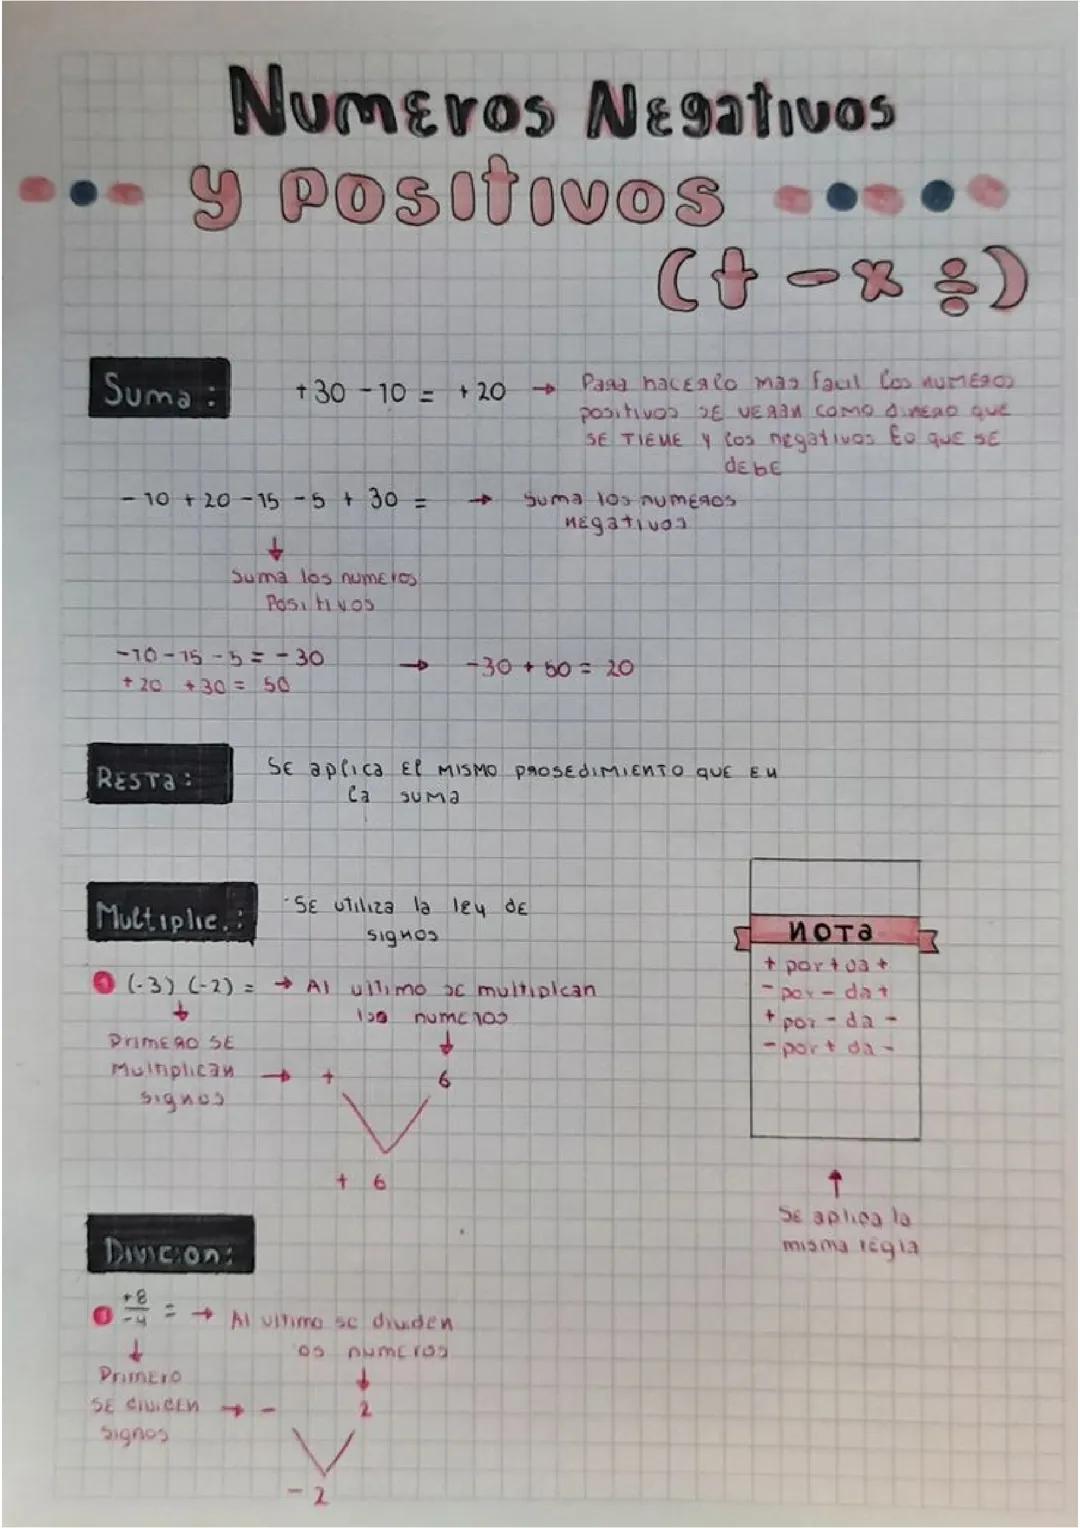 Numeros Negativos
y positivos
(+ - x ÷)
Suma:
+30 - 10 = +20 → Para hacerlo mas facil los numeros
positivos se veran como dinero que
se tiene y los negativos lo que se
debe
- 10 + 20 - 15 - 5 + 30 = → Suma los numeros
negativos
↓
Suma los numeros
Positivos
-10 - 15 - 5 = - 30 → -30 + 50 = 20
+ 20 + 30 = 50
Resta:
Se aplica el mismo prosedimiento que en
la suma
Multiplic.:
·Se utiliza la ley de
signos
1 (-3) (-2) = → Al ultimo se multiplcan
los numeros
↓ ↓
Primero se
Multiplican → + 6
signos
+ 6
Nota
+ por + da +
- por - da +
+ por - da -
- por + da -
↑
Se aplica la
misma regla
Divicion:
1 +8/-4 = → Al ultimo se dividen
os numeros
↓ ↓
Primero
se dividen → - 2
signos
- 2